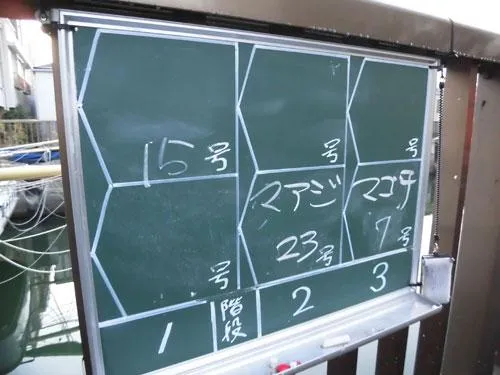 15号
号
号
号
マアジ
23号
マゴチ
7号
1
階段
2
3